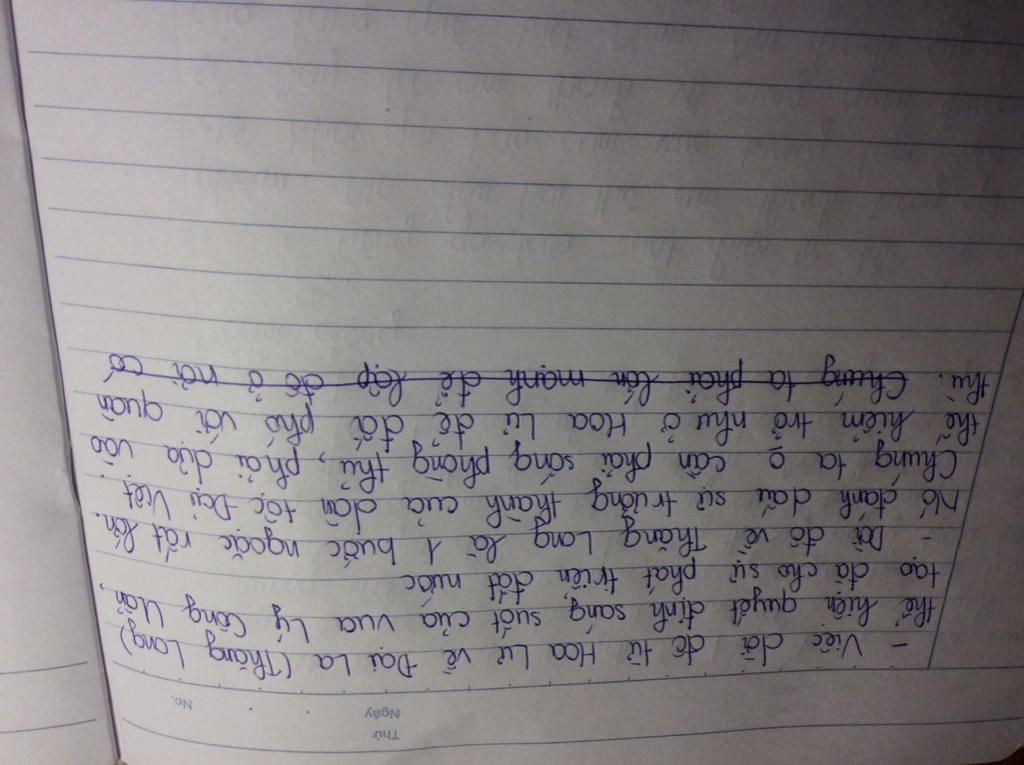 Thứ
Ngày
No.
- Việc dời đô từ Hoa Lư về Đại La (Thăng Long)
thể hiện quyết định sáng suốt của vua Lý Công Uẩn,
tạo đà cho sự phát triển đất nước
- Dời đô về Thăng Long là 1 bước ngoặc rất lớn.
Nó đánh dấu sự trưởng thành của dân tộc Đại Việt.
Chúng ta o cần phải sống phòng thủ, phải dựa vào
thế hiểm trở như ở Hoa Lư để đối phó với quân
thù. Chúng ta phải lớn mạnh để lập đô ở nơi có